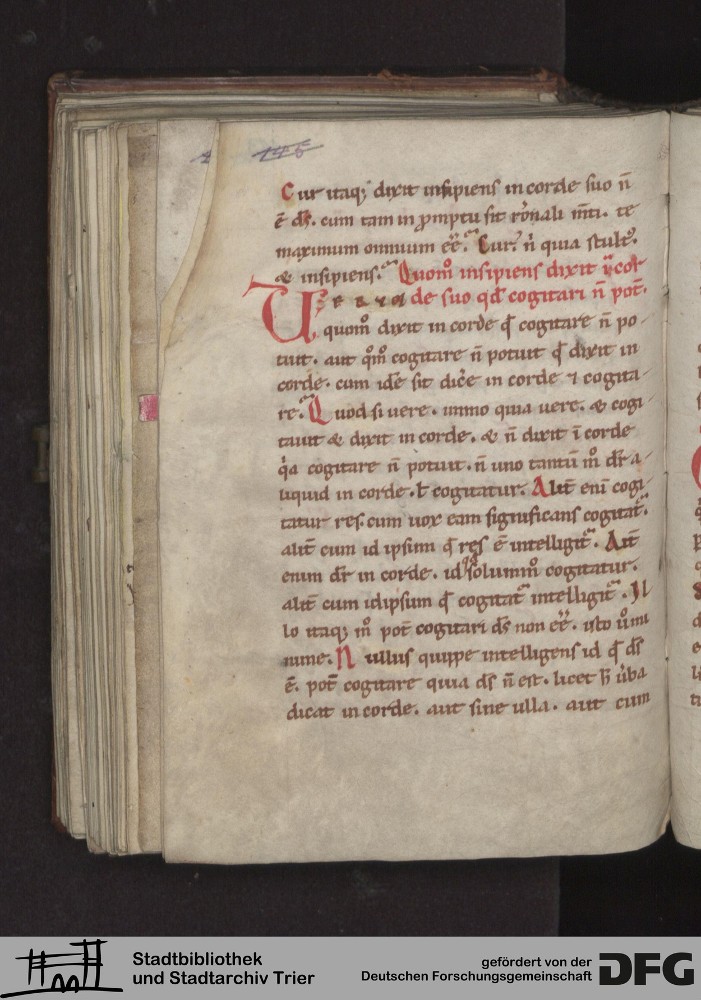 146
Cur itaq; dixit insipiens in corde suo n̄
ē dṡ. cum tam in p̄mptu sit rōnali m̄ti. te
maximum omnium eē̄. Cur? n̄ quia stultꝰ.
& insipiens. Quom̊ insipiens dixit ī cor
de suo qđ cogitari n̄ pot̄.
VERV̄
quom̊ dixit in corde q̄ cogitare n̄ po
tuit. aut q̊m̊ cogitare n̄ potuit q̄ dixit in
corde. cum idē sit dicē in corde ⁊ cogita
re. Quod si uere. immo quia uere. & cogi
tauit & dixit in corde. & n̄ dixit ī corde
qͥa cogitare n̄ potuit. n̄ uno tantū m̊ dr̄ a
liquid in corde. ł cogitatur. Alit̄ enī cogi
tatur res. cum uox eam significans cogitat̄.
alit̄ cum id ipsum q̄ res ē intelligit̄. Alit̄
enim dr̄ in corde. id solumm̊ cogitatur.
alit̄ cum idipsum q̄ cogitat̄ intelligit̄. Il
lo itaq; m̊ pot̄ cogitari dṡ non eē̄. isto ů mi
nime. Nullus quippe intelligens id q̄ dṡ
ē. pot̄ cogitare quia dṡ n̄ est. licet h̄ ůba
dicat in corde. aut sine ulla. aut cum
Stadtbibliothek
und Stadtarchiv Trier
gefördert von der
Deutschen Forschungsgemeinschaft
DFG